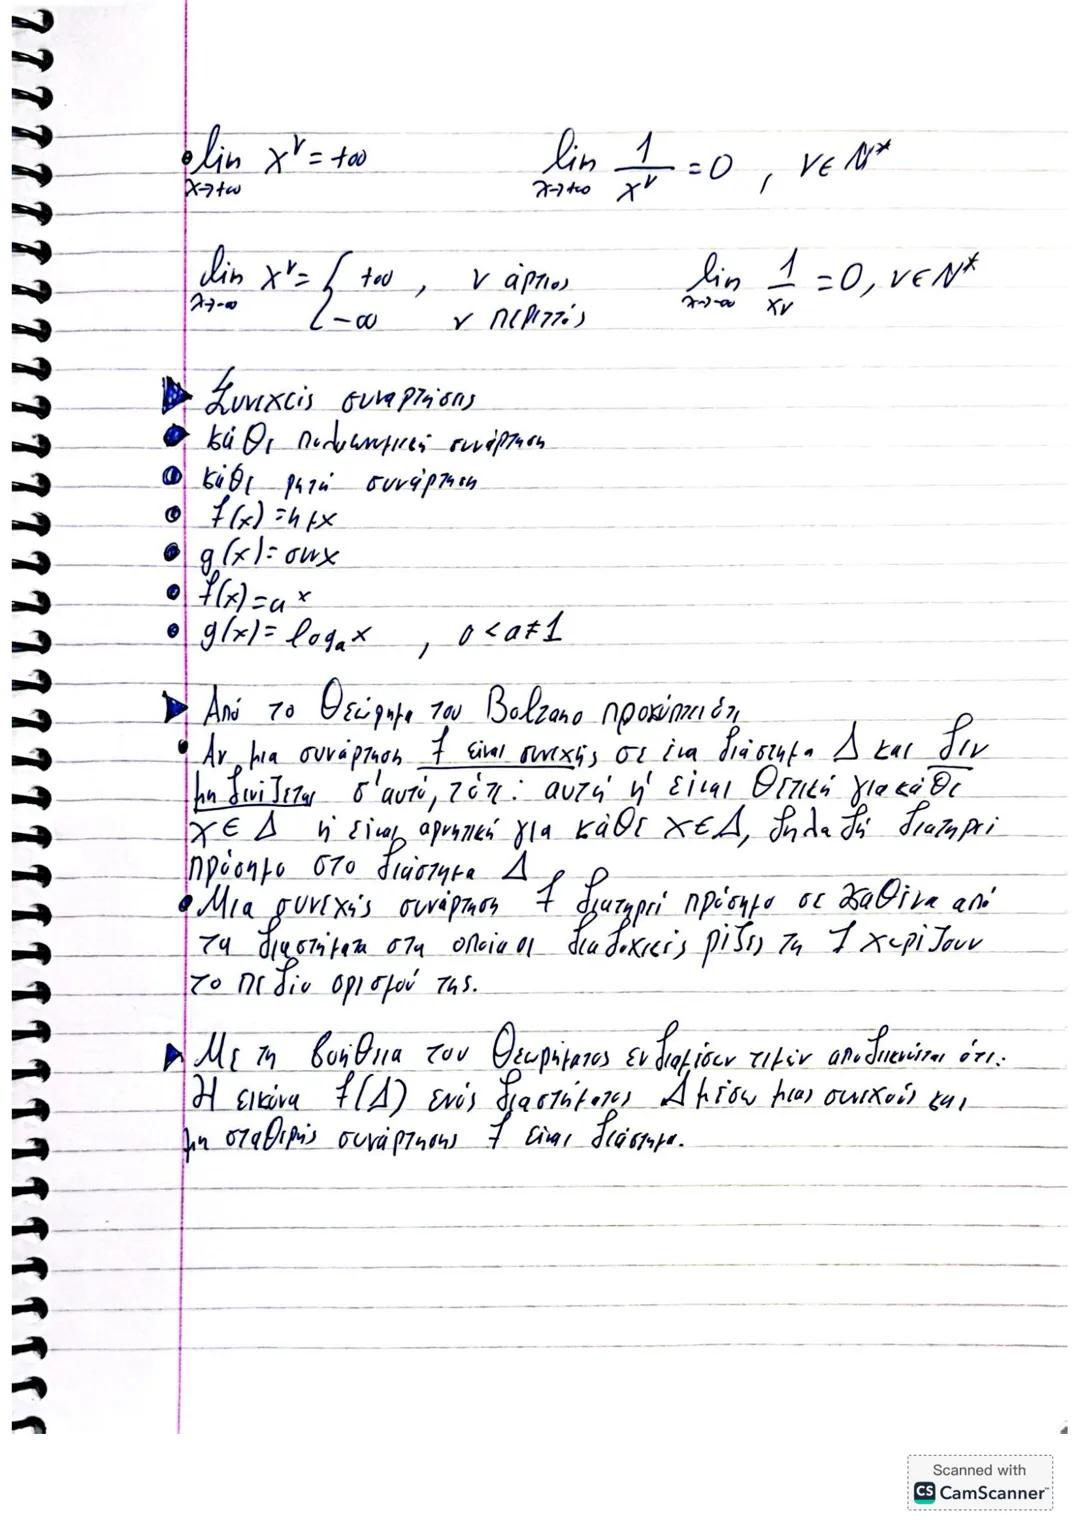 • lim x→+∞ x^ν = +∞    lim x→+∞ 1/x^ν = 0 , ν ∈ N*
lim x→-∞ x^ν = { +∞ , ν άρτιος    lim x→-∞ 1/x^ν = 0, ν ∈ N*
-∞ ν περιττός
▶ Συνεχείς συναρτήσεις
• κάθε πολυωνυμική συνάρτηση
• κάθε ρητή συνάρτηση
• f(x) = ημx
• g(x) = συνx
• f(x) = α^x
• g(x) = log_α x , 0 < α ≠ 1
▶ Από το Θεώρημα του Bolzano προκύπτει ότι
• Αν μια συνάρτηση f είναι συνεχής σε ένα διάστημα Δ και δεν
μηδενίζεται σ'αυτό, τότε: αυτή ή είναι θετική για κάθε
x ∈ Δ ή είναι αρνητική για κάθε x ∈ Δ, δηλαδή διατηρεί
πρόσημο στο διάστημα Δ
• Μια συνεχής συνάρτηση f διατηρεί πρόσημο σε καθένα από
τα διαστήματα στα οποία οι διαδοχικές ρίζες τη f χωρίζουν
το πεδίο ορισμού της.
▶ Με τη βοήθεια του Θεωρήματος ενδιαμέσων τιμών αποδεικνύεται ότι:
Η εικόνα f(Δ) ενός διαστήματος Δ μέσω μιας συνεχούς και
μη σταθερής συνάρτησης f είναι διάστημα.
Scanned with
CS CamScanner